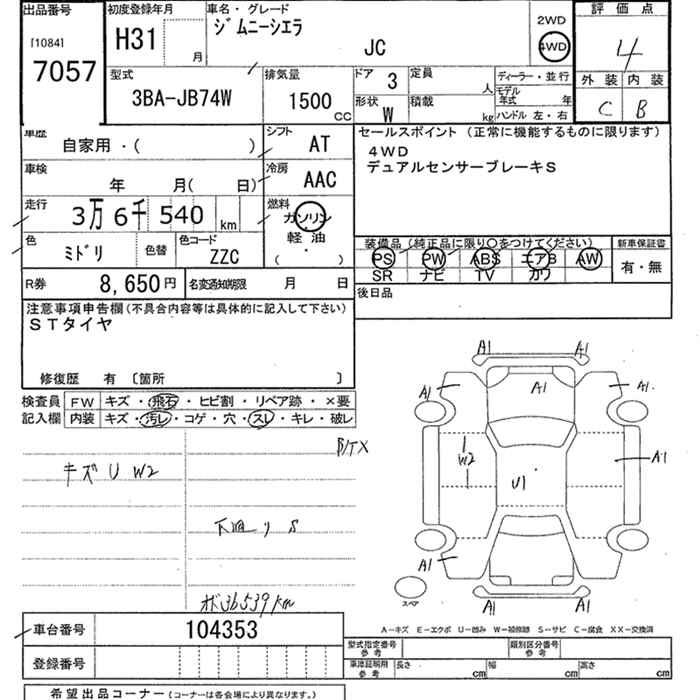 出品番号
[1084]
7057
初度登録年月
H31
月
車名・グレード
ジムニーシエラ
JC
2WD
4WD
評価点
4
外装 内装
C B
型式
3BA-JB74W
排気量
1500 CC
ドア 3
形状 W
定員 人
積載 kg
ディーラー・並行
モデル年式 年
ハンドル 左・右
車歴 自家用・( )
シフト AT
車検 年 月( 日)
冷房 AAC
走行 3万6千540 km
燃料 ガソリン
軽油
( ・ )
色 ミドリ
色替
色コード ZZC
R券 8,650円
名変通知期限 月 日
セールスポイント (正常に機能するものに限ります)
4WD
デュアルセンサーブレーキS
装備品 (純正品に限り○をつけてください)
PS PW ABS エアB AW
SR ナビ TV カワ
新車保証書
有・無
後日品
注意事項申告欄 (不具合内容等は具体的に記入して下さい)
STタイヤ
修復歴 有 〔箇所 〕
検査員記入欄
FW キズ・飛石・ヒビ割・リペア跡・×要
内装 キズ・汚レ・コゲ・穴・スレ・キレ・破レ
キズU W2
下廻り S
ボ36539km
A1 A1
A1 A1 A1
W2 U1 A1
A1
A1 A1
スペア
A-キズ E-エクボ U-凹み W-補修跡 S-サビ C-腐食 XX-交換済
車台番号 104353
登録番号
型式指定番号 参考
類別区分番号 参考
車庫証明用 参考 長さ cm 幅 cm 高さ cm
希望出品コーナー (コーナーは各会場により異なります。)